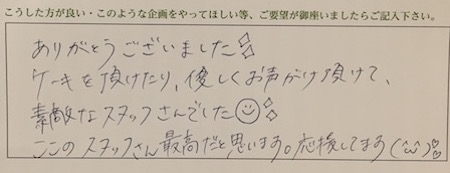 こうした方が良い・このような企画をやってほしい等、ご要望が御座いましたらご記入下さい。
ありがとうございました
ケーキを頂けたり、優しくお声がけ頂けて、
素敵なスタッフさんでした☺
ここのスタッフさん最高だと思います。応援してます(^ω^)